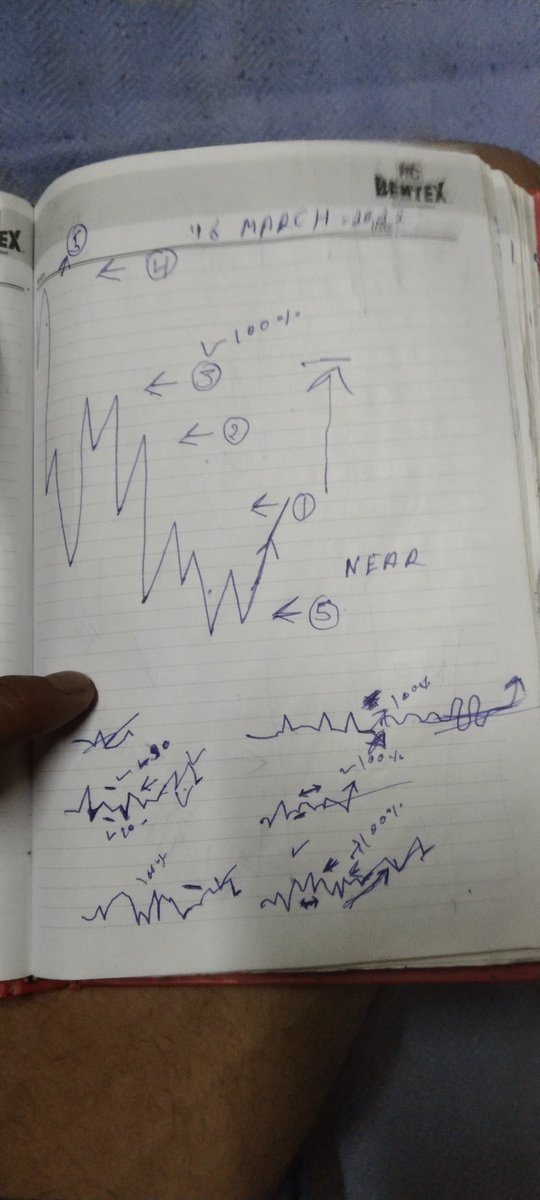 EX
BENTEX
MARCH
5
← 4
✓ 100%
← 3
← 2
← 1
NEAR
← 5
100%
✓ 90
✓ 100%
✓ 20
100%
100%